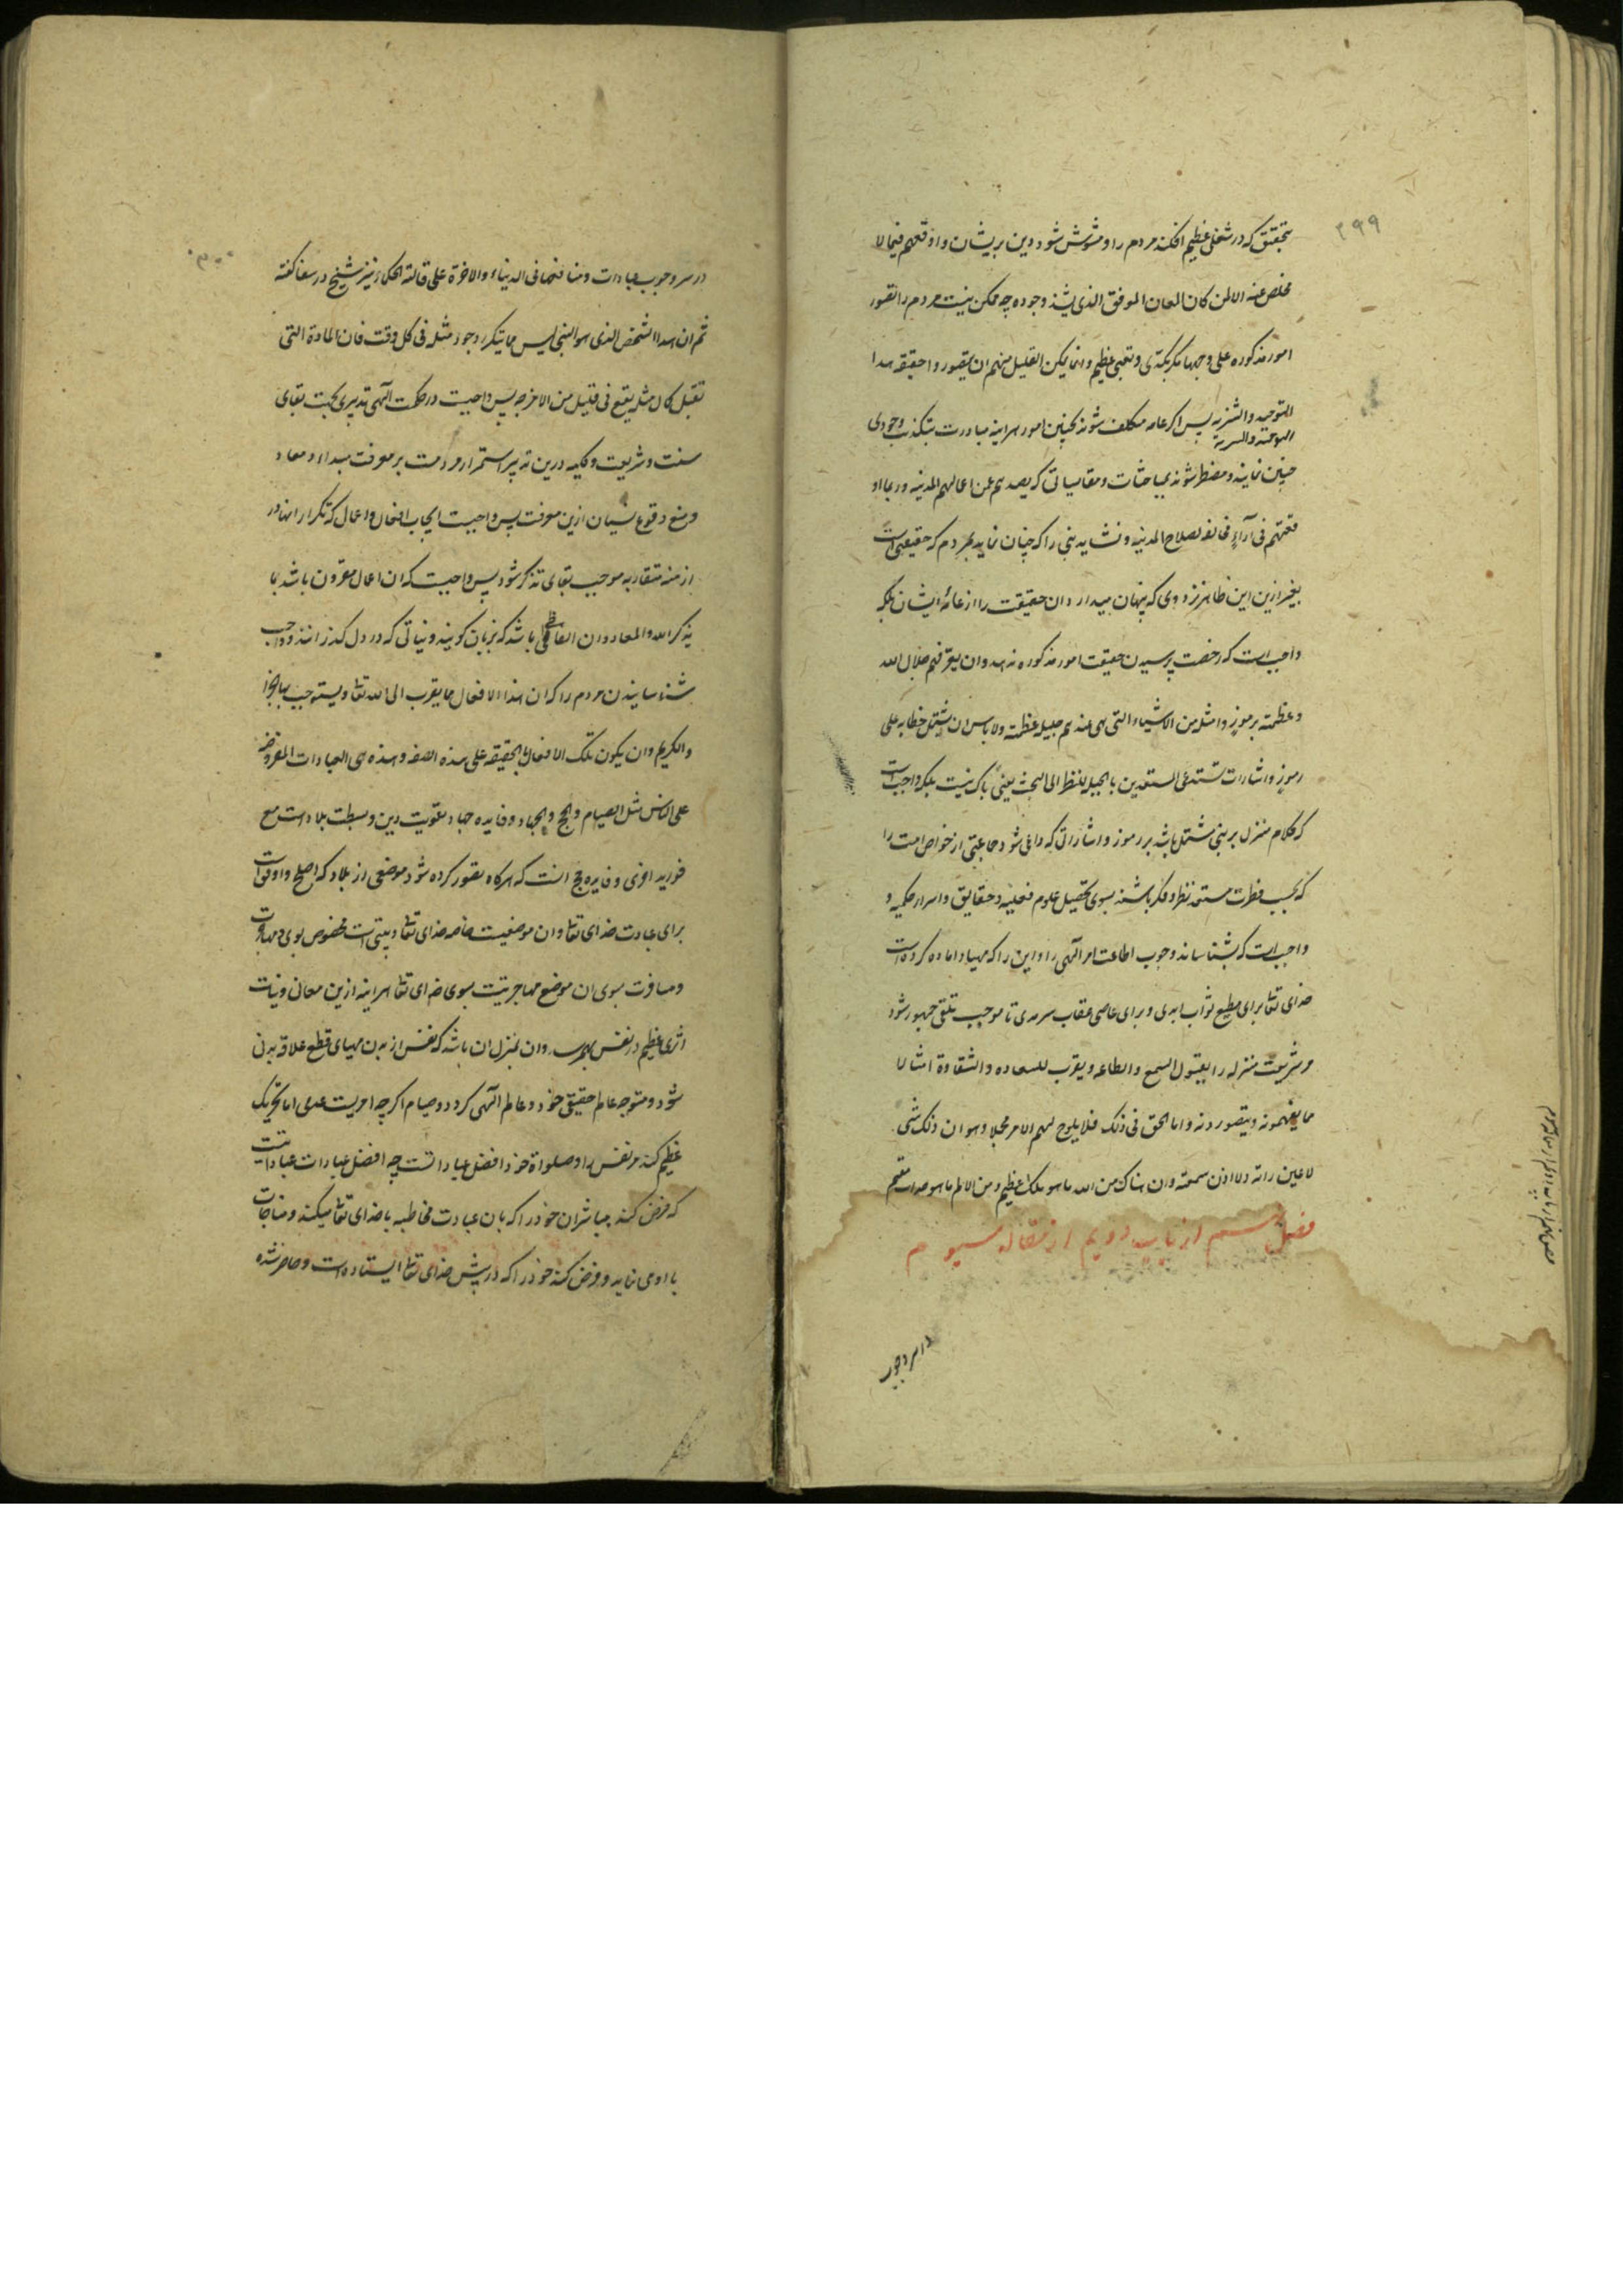 ۲۹۹
بتحقیق که در شغلی عظیم افکند مردم را و مشوش شود دین بریشان و اوقعهم فیما لا
مخلص عنه الا لمن کان المعان الموفق الذی یشذ وجوده چه ممکن نیست مردم را تصور
امور مذکوره علی وجهها مکر بکدی و تعبی عظیم و انما یمکن القلیل منهم ان یتصوروا حقیقه هذا
التوحید والتنزیه پس اکر عامه مکلف شوند بچنین امور هراینه مبادرت بتکذیب وجودی
چنین نمایند و مضطر شوند بمباحثات و مقایساتی که یصدهم عن اعمالهم المدنیه و ربما او
قعتهم فی آراء مخالفه لصلاح المدنیه و نشاید نبی را که چنان نماید بمردم که حقیقتی است
بغیر ازین این ظاهر نزد وی که پنهان میدارد ان حقیقت را از عامهٔ ایشان بلکه
واجب است که رخصت پرسیدن حقیقت امور مذکوره ندهد وان یعرفهم جلال الله
وعظمته برموز وامثله من الاشیاء التی هی عندهم جلیله عظیمة ولا باس ان یشتمل خطابه علی
رموز واشارات تستدعی المستعدین بالجبله للنظر الی البحث یعنی باک نیست بلکه واجب است
که کلام منزل بر نبی مشتمل باشد بر رموز و اشاراتی که داعی شود جماعتی از خواص امت را
که بحسب فطرت مستعد نظر و فکر باشند بسوی تحصیل علوم فعلیه و حقایق و اسرار حکمیه و
واجب است که بشناساند وجوب اطاعت امر آلهی را و این را که مهیا و اماده کرده است
خدای تعالی برای مطیع ثواب ابدی و برای عاصی عقاب سرمدی تا موجب تلقی جمهور شود
مر شریعت منزله را بقبول السمع والطاعه ویقرب للسعاده والشقاوة امثالا
مما یفهمونه ویتصورونه واما الحق فی ذلک فلا یلوح لهم الا امر مجملا وهو ان ذلک شی
لا عین راته ولا اذن سمعته وان هناک من الله ما هو ملک عظیم ومن الالم ما هو عذاب مقیم
فصل ششم از باب دویم از مقاله سیوم
در سر وجوب
۳۰۰
در سر وجوب عبادات ومنافعها فی الدنیا والاخرة علی ما قالته الحکماء نیز شیخ در شفا گفته
ثم ان هذا الشخص الذی هو النبی لیس مما یتکرر وجود مثله فی کل وقت فان المادة التی
تقبل کمال مثله یقع فی قلیل من الامزجه پس واجبست در حکمت آلهی تدبیری بجهت بقای
سنت و شریعت و کلیه درین تدبیر استمرار مردمست بر معرفت مبداء و معاد
و منع وقوع نسیان ازین معرفت پس واجبست ایجاب افعال و اعمال که تکرار انها در
ازمنه متقاربه موجب بقای تذکر شود پس واجبست که ان اعمال مقرون باشد بما
یذکر الله والمعاد وان الفاظی باشد که بزبان کویند و نیاتی که در دل کذرانند و واجب
شناسانیدن مردم را که ان هذا الافعال مما یقرب الی الله تعالی ویستوجب بها الجزا
والکریم وان یکون تلک الافعال بالحقیقه علی هذه الصفه وهذه هی العبادات المفروضه
علی الناس مثل الصیام والحج والجهاد و فایده جهاد تقویت دین و بسطت بلاد است مع
فوائد اخری و فایده حج انست که هرکاه تصور کرده شود موضعی از بلاد که اصلح و اوفق است
برای عبادت خدای تعالی و ان موضعیست خاصه خدای تعالی و بیتی است مخصوص بوی و مهاجرت
و مسافرت بسوی ان موضع مهاجرتیست بسوی خدای تعالی هراینه ازین معانی و نیات
اثری عظیم در نفس بهم رسد و ان بمنزل ان باشد که نفس از بدن مهیای قطع علاقه بدنی
شود و متوجه عالم حقیقی خود و عالم الهی کردد و صیام اکرچه امریست عدمی اما تحریک
عظیم کند مر نفس را و صلواة خود افضل عبادا تست چه افضل عبادات عباداتیست
که فرض کند مباشر ان خود را که بان عبادت مخاطبه با خدای تعالی میکند و مناجات
با او می نماید و فرض کند خود را که در پیش خدای تعالی ایستاده است و حاضر شده